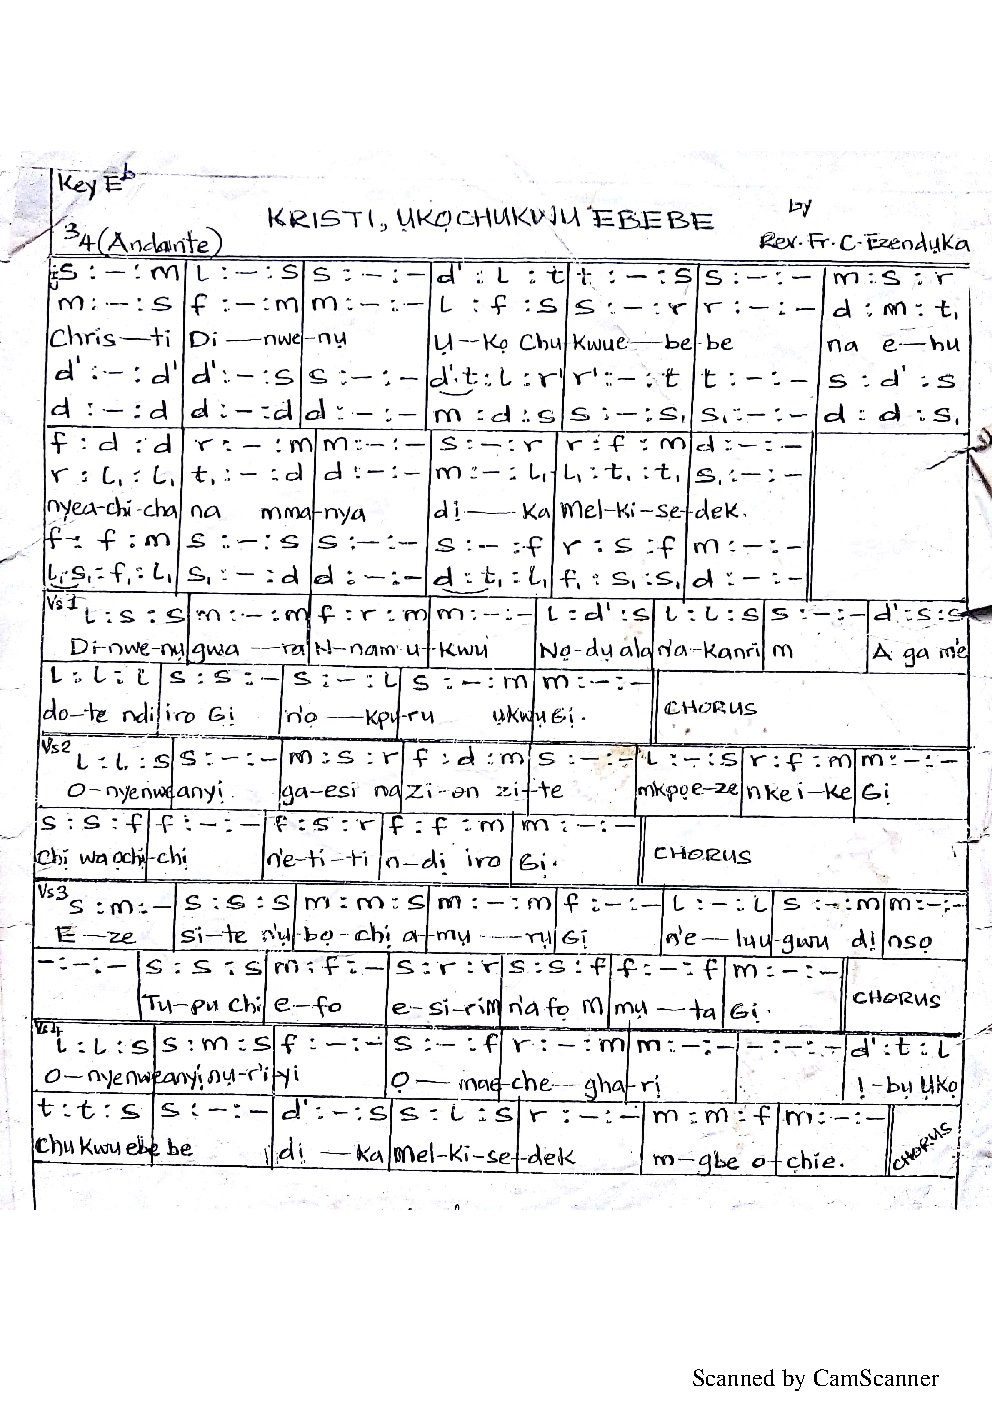 Key Eb
KRISTI, ỤKỌCHUKWU EBEBE
by
3/4 (Andante)
Rev. Fr. C. Ezendụka
s : - : m | l : - : s | s : - : - | d' : l : t | t : - : s | s : - : - | m : s : r
m : - : s | f : - : m | m : - : - | l : f : s | s : - : r | r : - : - | d : m : t,
Chris—ti | Di—nwe-nụ | Ụ-Kọ Chu | Kwue—be-be | na e—hu
d' : - : d' | d' : - : s | s : - : - | d'.t : l : r' | r' : - : t | t : - : - | s : d' : s
d : - : d | d : - : d | d : - : - | m : d : s | s : - : s, | s, : - : - | d : d : s,
f : d : d | r : - : m | m : - : - | s : - : r | r : f : m | d : - : -
r : l, : l, | t, : - : d | d : - : - | m : - : l, | l, : t, : t, | s, : - : -
nyea-chi-cha | na mma-nya | dị—Ka | Mel-ki-se-dek.
f : f : m | s : - : s | s : - : - | s : - : f | r : s : f | m : - : -
l,.s, : f, : l, | s, : - : d | d : - : - | d : t, : l, | f, : s, : s, | d : - : -
Vs1 l : s : s | m : - : m | f : r : m | m : - : - | l : d' : s | l : l : s | s : - : - | d' : s : s
Di-nwe-nụ gwa—ra N-nam u-kwu | Nọ-dụ ala | n'a-Kanri m | A ga m'e
l : l : l | s : s : - | s : - : l | s : - : m | m : - : - | CHORUS
do-te ndi iro Gị | n'ọ—kpu-ru ukwu Gị.
Vs2 l : l : s | s : - : - | m : s : r | f : d : m | s : - : - | l : - : s | r : f : m | m : - : -
O-nyenweanyi. | ga-esi na Zi-on zi-te | mkpọe-ze | nke i-ke Gị
s : s : f | f : - : - | f : s : r | f : f : m | m : - : - | CHORUS
Chị wa ọchị-chị | n'e-ti-ti | n-dị iro | Gị.
Vs3 s : m : - | s : s : s | m : m : s | m : - : m | f : - : - | l : - : l | s : - : m | m : - : -
E—ze | si-te n'ụ-bọ-chị a-mụ—rụ Gị | n'e—luu-gwu dị nsọ
- : - : - | s : s : s | m : f : - | s : r : r | s : s : f | f : - : f | m : - : - | CHORUS
Tu-pu chi | e-fo | e-si-rim | n'afọ M | mụ—ta | Gị.
Vs4 l : l : s | s : m : s | f : - : - | s : - : f | r : - : m | m : - : - | - : - : - | d' : t : l
O-nyenweanyị ṅu-rị-yi | Ọ—mae-che—gha-rị | Ị-bụ Ụkọ
t : t : s | s : - : - | d' : - : s | s : l : s | r : - : - | m : m : f | m : - : - | CHORUS
Chukwu ebe be | dị—ka | Mel-ki-se-dek | m-gbe o-chie.
Scanned by CamScanner